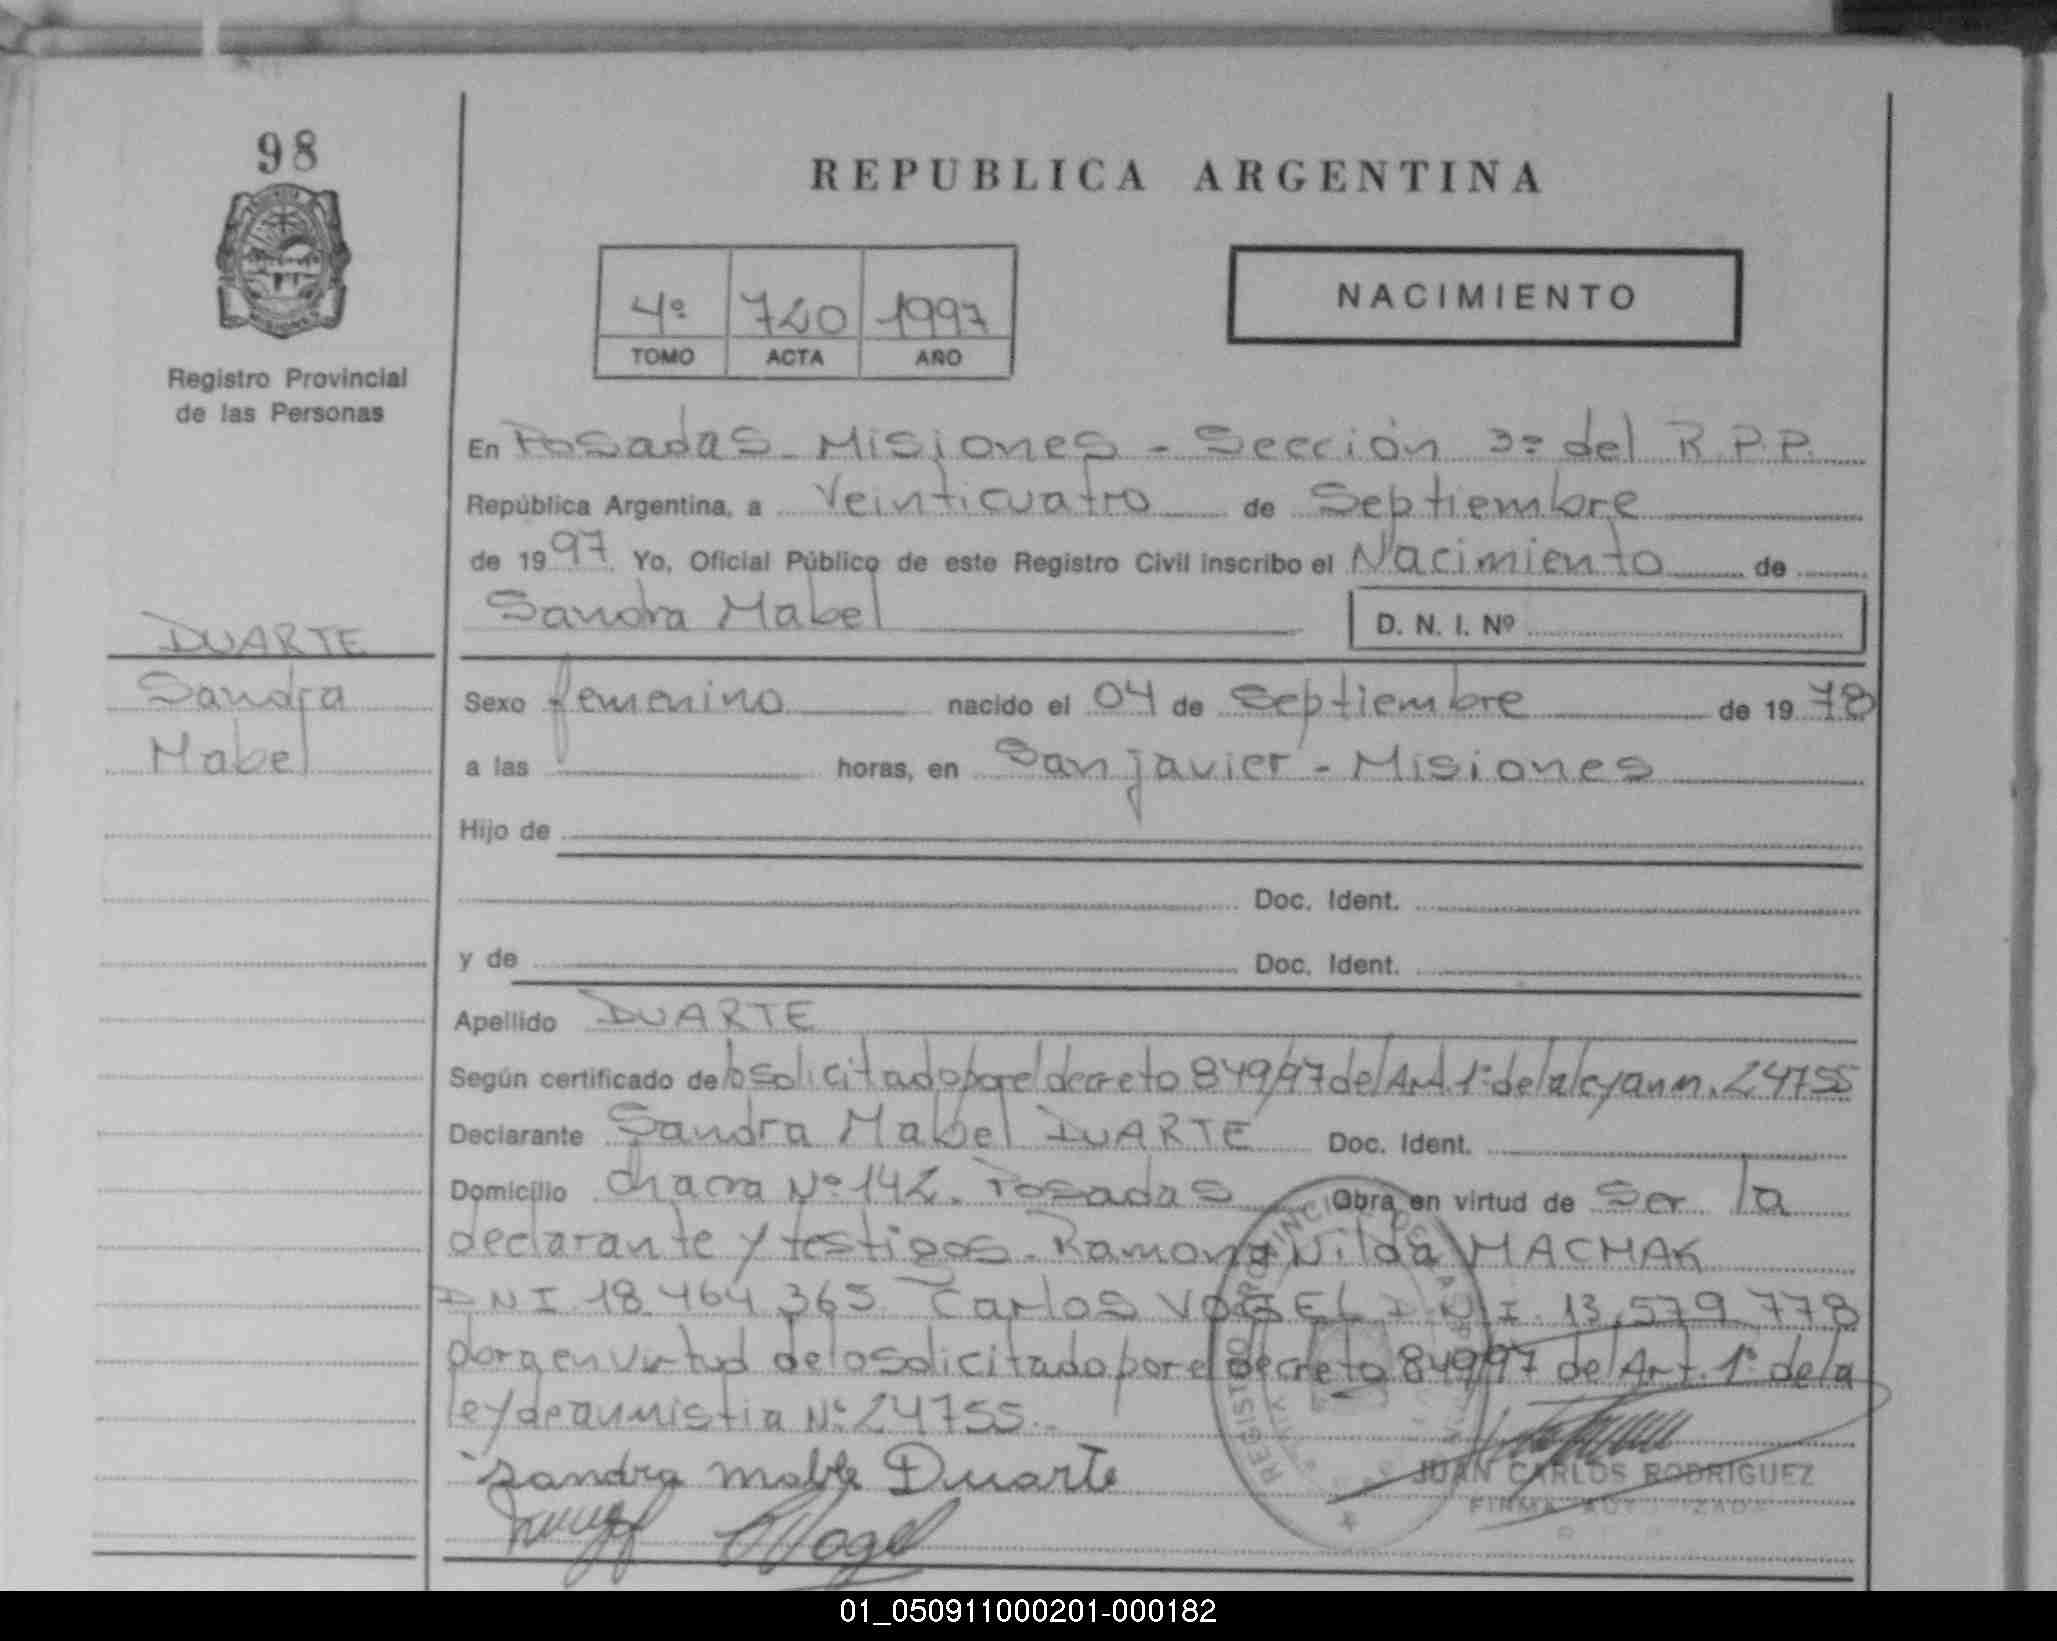 98
REPUBLICA ARGENTINA
4º 720 1997
TOMO ACTA AÑO
NACIMIENTO
Registro Provincial
de las Personas
En Posadas - Misiones - Sección 3ª del R.P.P.
República Argentina, a Veinticuatro de Septiembre
de 1997 Yo, Oficial Público de este Registro Civil inscribo el Nacimiento de
Sandra Mabel
D. N. I. Nº
DUARTE
Sandra
Mabel
Sexo femenino nacido el 04 de Septiembre de 1978
a las horas, en San javier - Misiones
Hijo de
Doc. Ident.
y de Doc. Ident.
Apellido DUARTE
Según certificado de lo solicitado por el decreto 849/97 del Art. 1º de la ley amn. 24755
Declarante Sandra Mabel DUARTE Doc. Ident.
Domicilio chacra Nº 142. Posadas Obra en virtud de Ser la
declarante y testigos. Ramona Nilda MACHAK
DNI 18.464.365. Carlos VOGEL D.N.I. 13.579.778
obra en virtud de lo solicitado por el decreto 84997 del Art. 1º de la
ley de aunistia Nº 24755.
sandra mable Duarte
Vogel
JUAN CARLOS RODRIGUEZ
FIRMA AUTORIZADA
01_050911000201-000182